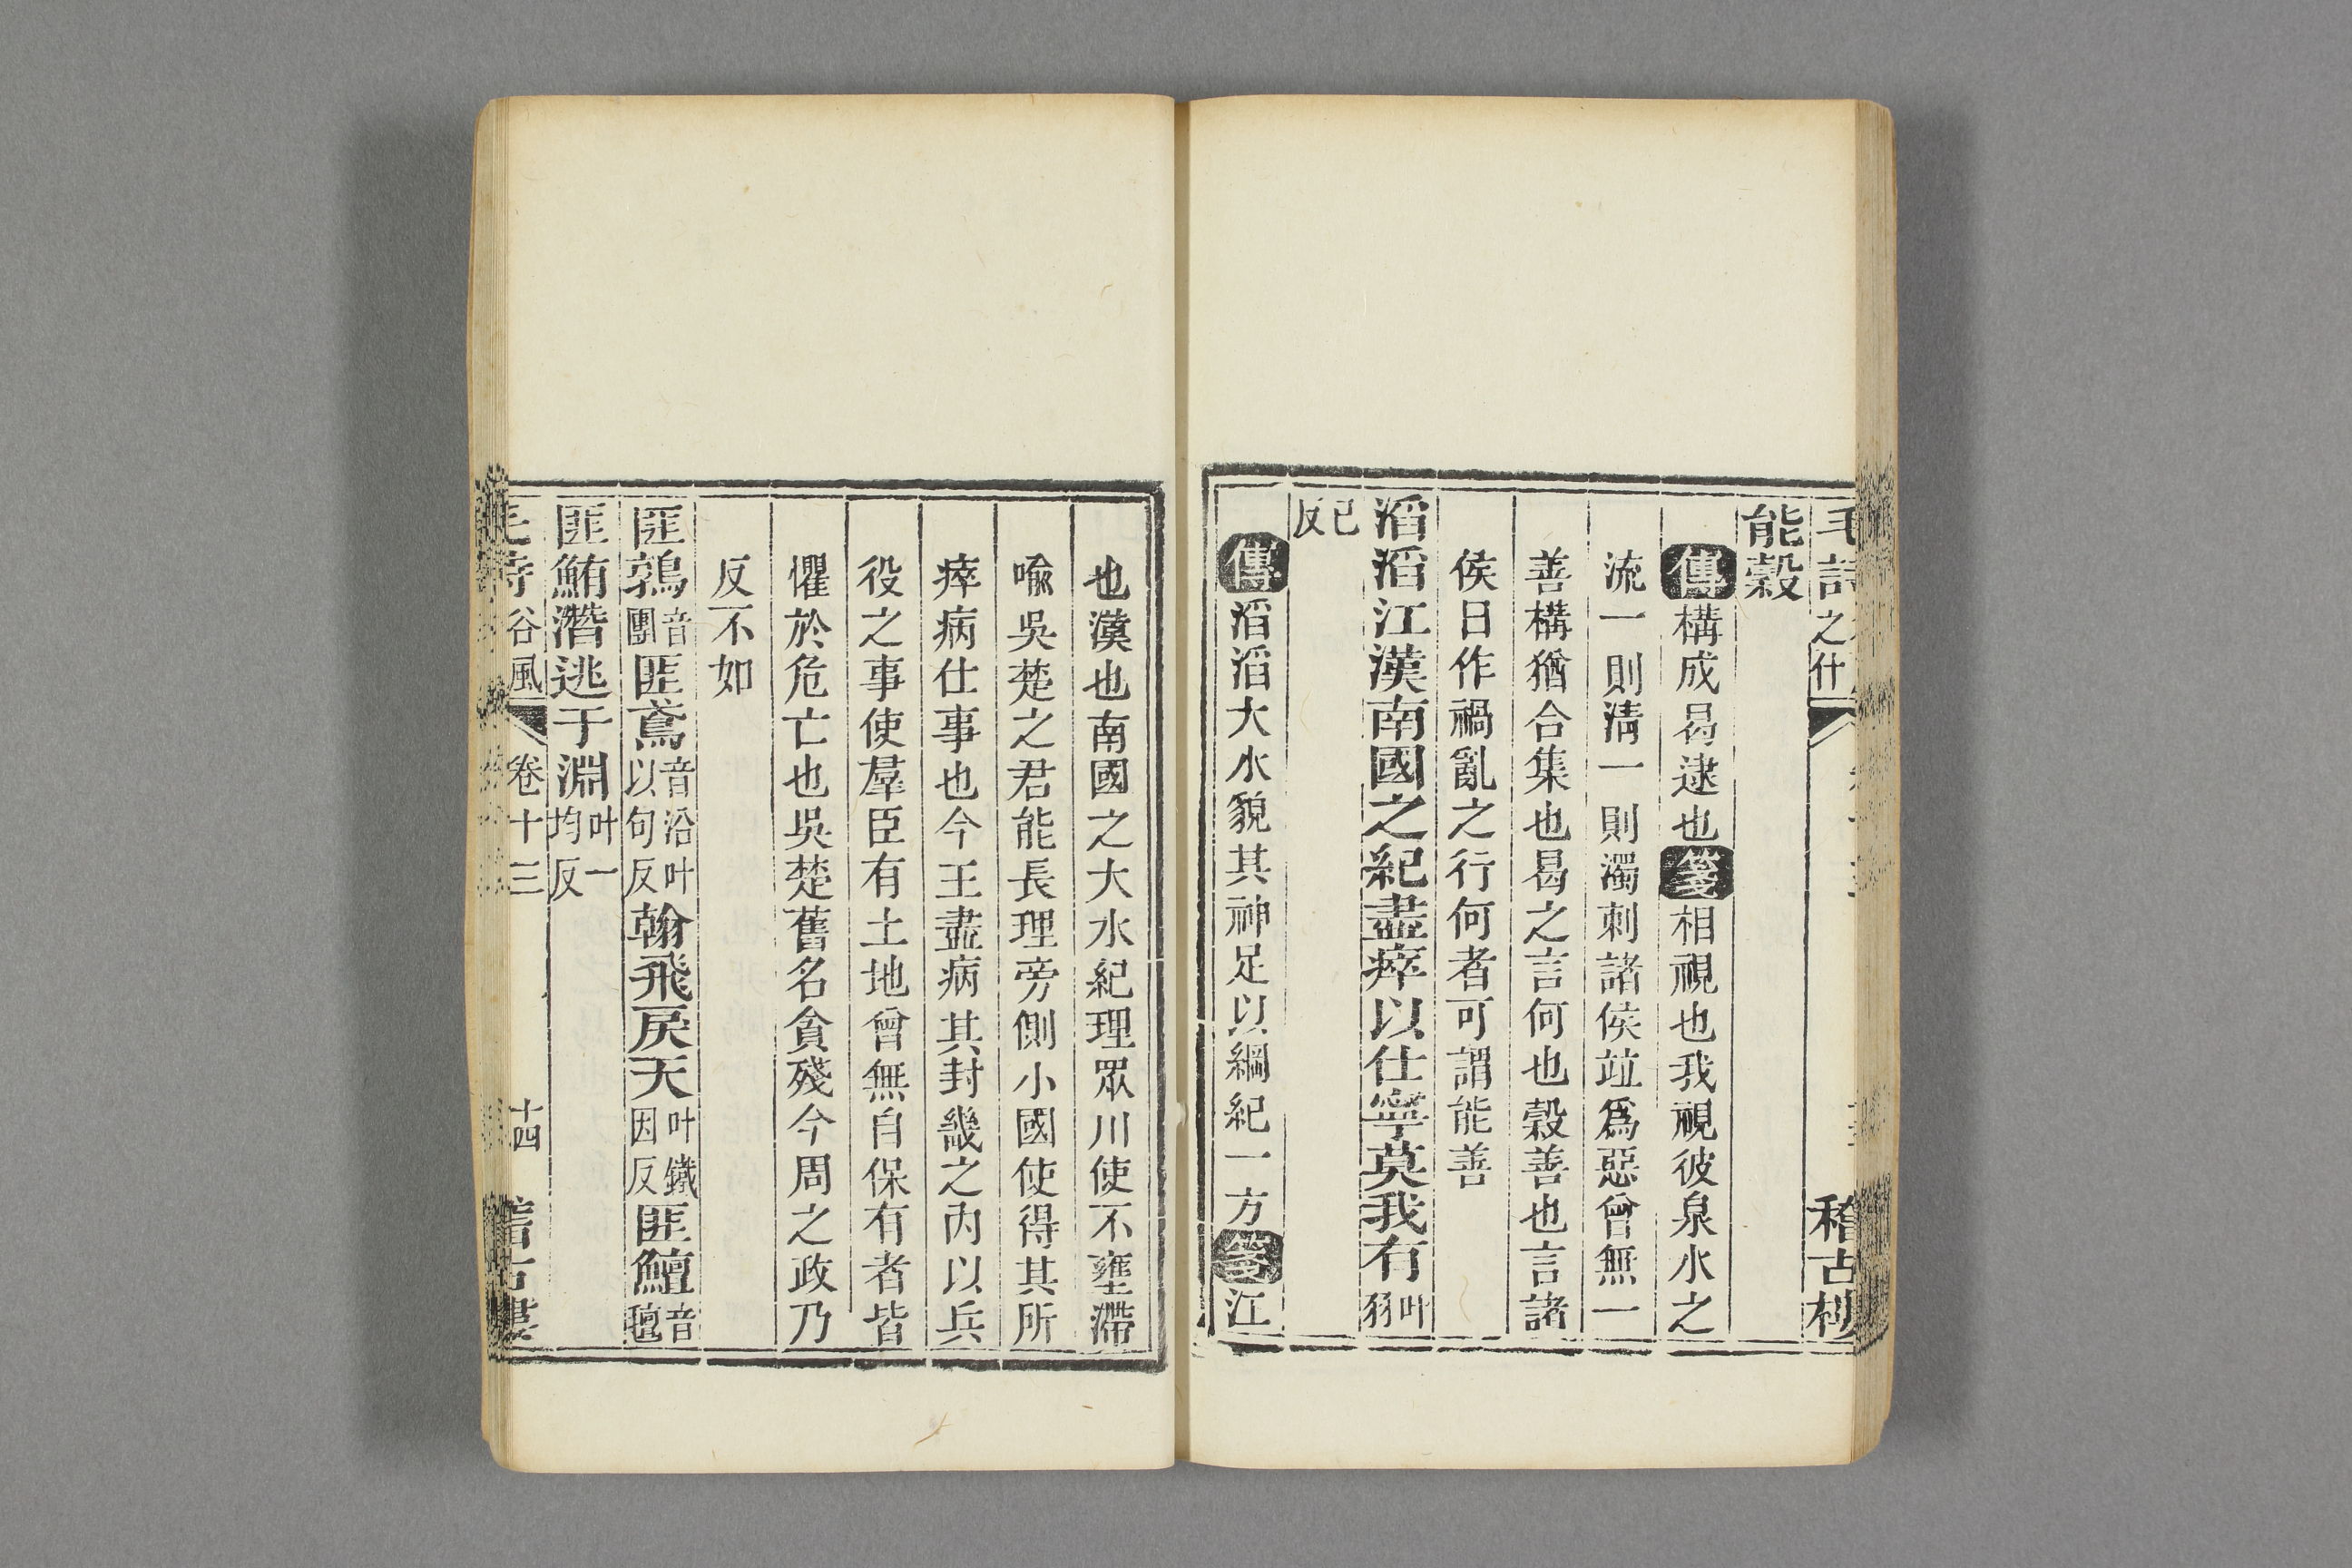 毛詩之什 稽古樓
能穀
傳構成曷逮也箋相視也我視彼泉水之
流一則淸一則濁刺諸侯竝爲惡曾無一
善構猶合集也曷之言何也穀善也言諸
侯日作禍亂之行何者可謂能善
滔滔江漢南國之紀盡瘁以仕寧莫我有叶羽
已反
傳滔滔大水貌其神足以綱紀一方箋江
也漢也南國之大水紀理眾川使不壅滯
喩吳楚之君能長理旁側小國使得其所
瘁病仕事也今王盡病其封畿之內以兵
役之事使羣臣有土地曾無自保有者皆
懼於危亡也吳楚舊名貪殘今周之政乃
反不如
匪鶉音團匪鳶音沿叶以句反翰飛戾天叶鐵因反匪鱣音氊
匪鮪潛逃于淵叶一均反
毛詩谷風 卷十三 十四 稽古樓